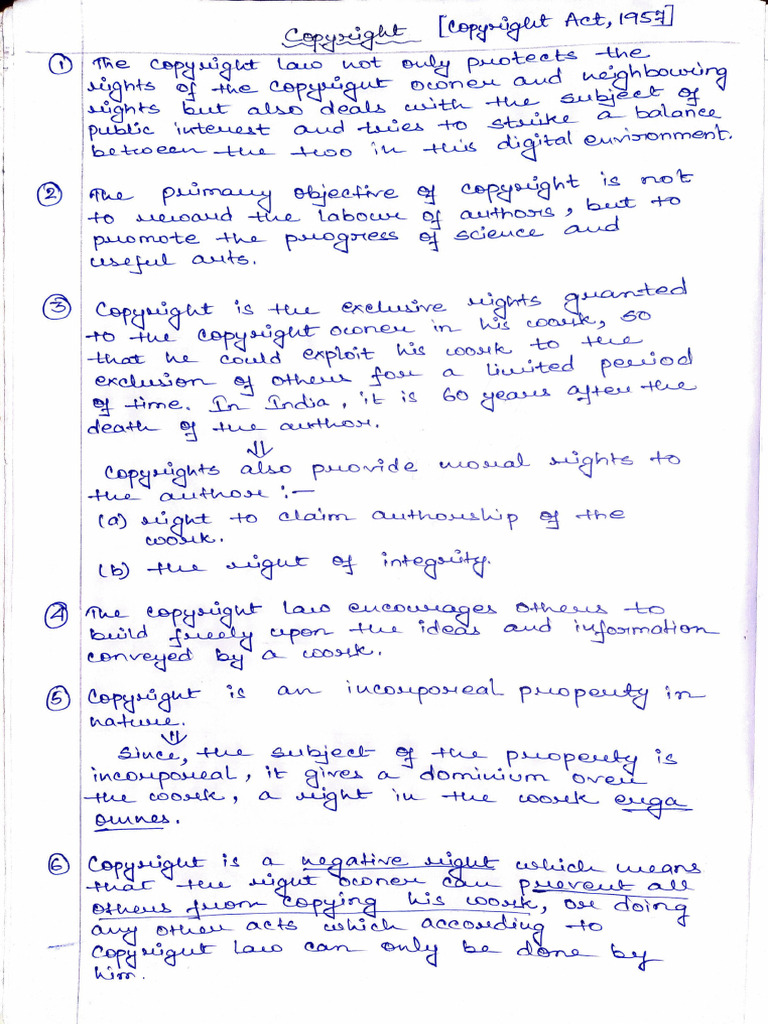 Copyright [Copyright Act, 1957]
① The copyright law not only protects the
rights of the copyright owner and neighbouring
rights but also deals with the subject of
public interest and tries to strike a balance
between the two in this digital environment.
② The primary objective of copyright is not
to reward the labour of authors, but to
promote the progress of science and
useful arts.
③ Copyright is the exclusive rights granted
to the copyright owner in his work, so
that he could exploit his work to the
exclusion of others for a limited period
of time. In India, it is 60 years after the
death of the author.
⇓
Copyrights also provide moral rights to
the author :-
(a) right to claim authorship of the
work.
(b) the right of integrity.
④ The copyright law encourages others to
build freely upon the ideas and information
conveyed by a work.
⑤ Copyright is an incorporeal property in
nature.
⇓
Since, the subject of the property is
incorporeal, it gives a dominium over
the work, a right in the work erga
omnes.
⑥ Copyright is a negative right which means
that the right owner can prevent all
others from copying his work, or doing
any other acts which according to
copyright law can only be done by
him.